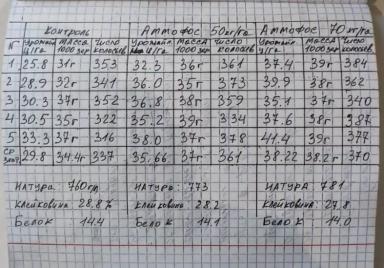 Контроль Аммофос 50кг/га Аммофос 70кг/га
№ Урожай ц/га Масса 1000 зер Число колосьев Урожайн ц/га Масса 1000 зер Число колосьев Урожай ц/га Масса 1000 зер Число колосьев
1 25.8 31г 353 32.3 36г 361 37.4 39г 384
2 28.9 32г 341 36.0 35г 373 39.9 38г 362
3 30.3 37г 352 36.8 38г 359 35.1 37г 340
4 30.5 35г 322 35.2 39г 334 37.6 38г 387
5 33.3 37г 316 38.0 37г 378 41.4 39г 377
29.8 34.4г 337 35.66 37г 361 38.22 38.2г 370
Натура: 760гр Натура: 773 Натура: 781
Клейковина 28,8% Клейковина: 28.2 Клейковина: 27.8
Белок 14.4 Белок: 14.1 Белок: 14.0